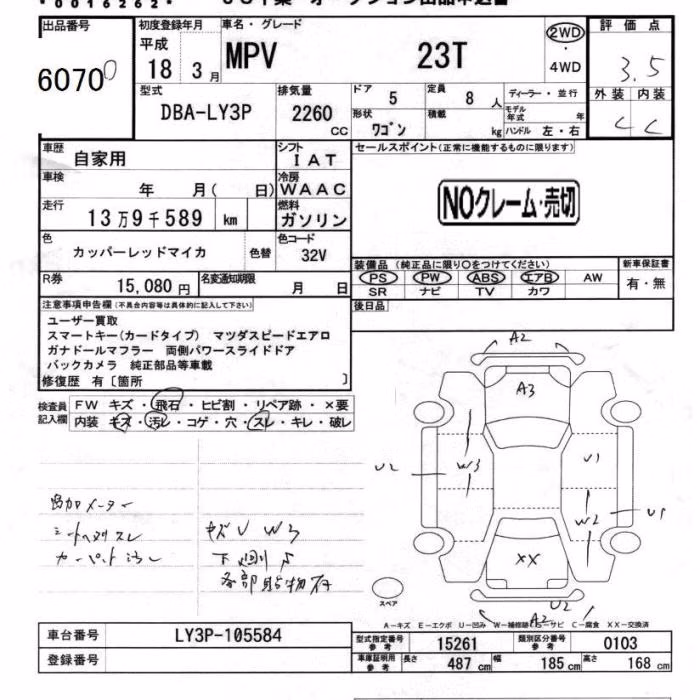 00016262
出品番号 初度登録年月 車名・グレード 評価点
60700
平成
18 3月 MPV 23T 2WD ・ 4WD 3.5
型式 DBA-LY3P
排気量 2260 CC
ドア 5 定員 8 人
形状 ワゴン 積載 kg
ディーラー・並行
モデル年式 年
ハンドル 左・右
外装 内装
C C
車歴 自家用
シフト IAT
セールスポイント(正常に機能するものに限ります)
車検 年 月( 日)
冷房 WAAC
NOクレーム・売切
走行 13万9千589 km
燃料 ガソリン
色 カッパーレッドマイカ 色替
色コード 32V
装備品(純正品に限り○をつけてください) 新車保証書
PS PW ABS エアB AW
SR ナビ TV カワ
有・無
R券 15,080円 名変通知期限 月 日
後日品
注意事項申告欄(不具合内容等は具体的に記入して下さい)
ユーザー買取
スマートキー(カードタイプ) マツダスピードエアロ
ガナドールマフラー 両側パワースライドドア
バックカメラ 純正部品等車載
修復歴 有〔箇所 〕
検査員記入欄
FW キズ・飛石・ヒビ割・リペア跡・×要
内装 キズ・汚レ・コゲ・穴・スレ・キレ・破レ
A2
A3
U2 W3 U1
W2 U1
XX
U2
A2
追加メーター
シートヘタリスレ
カーペット汚レ
キズU W3
下廻りS
各部貼物有
スペア
A-キズ E-エクボ U-凹み W-補修跡 S-サビ C-腐食 XX-交換済
車台番号 LY3P-105584
登録番号
型式指定番号 参考 15261 類別区分番号 参考 0103
車庫証明用 参考 長さ 487 cm 幅 185 cm 高さ 168 cm